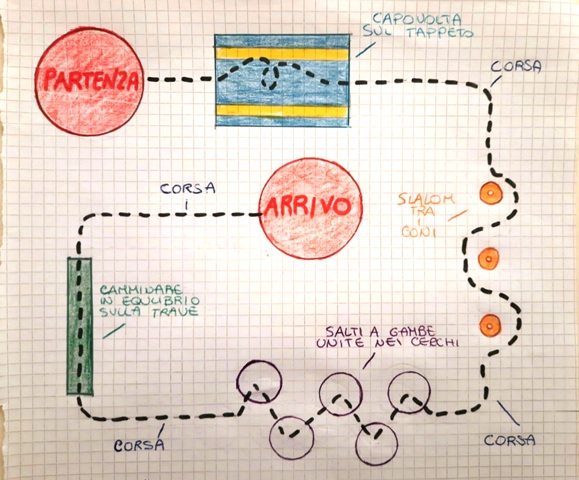 PARTENZA
CAPOVOLTA
SUL TAPPETO
CORSA
SLALOM
TRA
I
CONI
CORSA
SALTI A GAMBE
UNITE NEI CERCHI
CORSA
CAMMINARE
IN EQULIBRIO
SULLA TRAVE
CORSA
ARRIVO